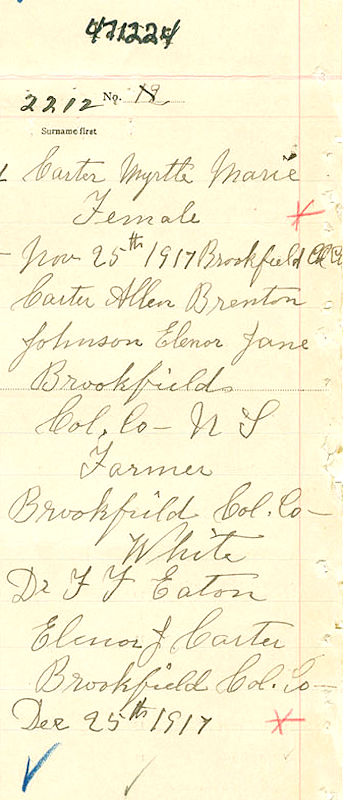 471224
2212 No. 18
Surname first
Carter Myrtle Marie
Female
Nov 25th 1917 Brookfield Col Co
Carter Allen Brenton
Johnson Elenor Jane
Brookfields
Col. Co - N S
Farmer
Brookfield Col. Co -
White
Dr F F Eaton
Elenor J Carter
Brookfield Col. Co -
Dec 25th 1917